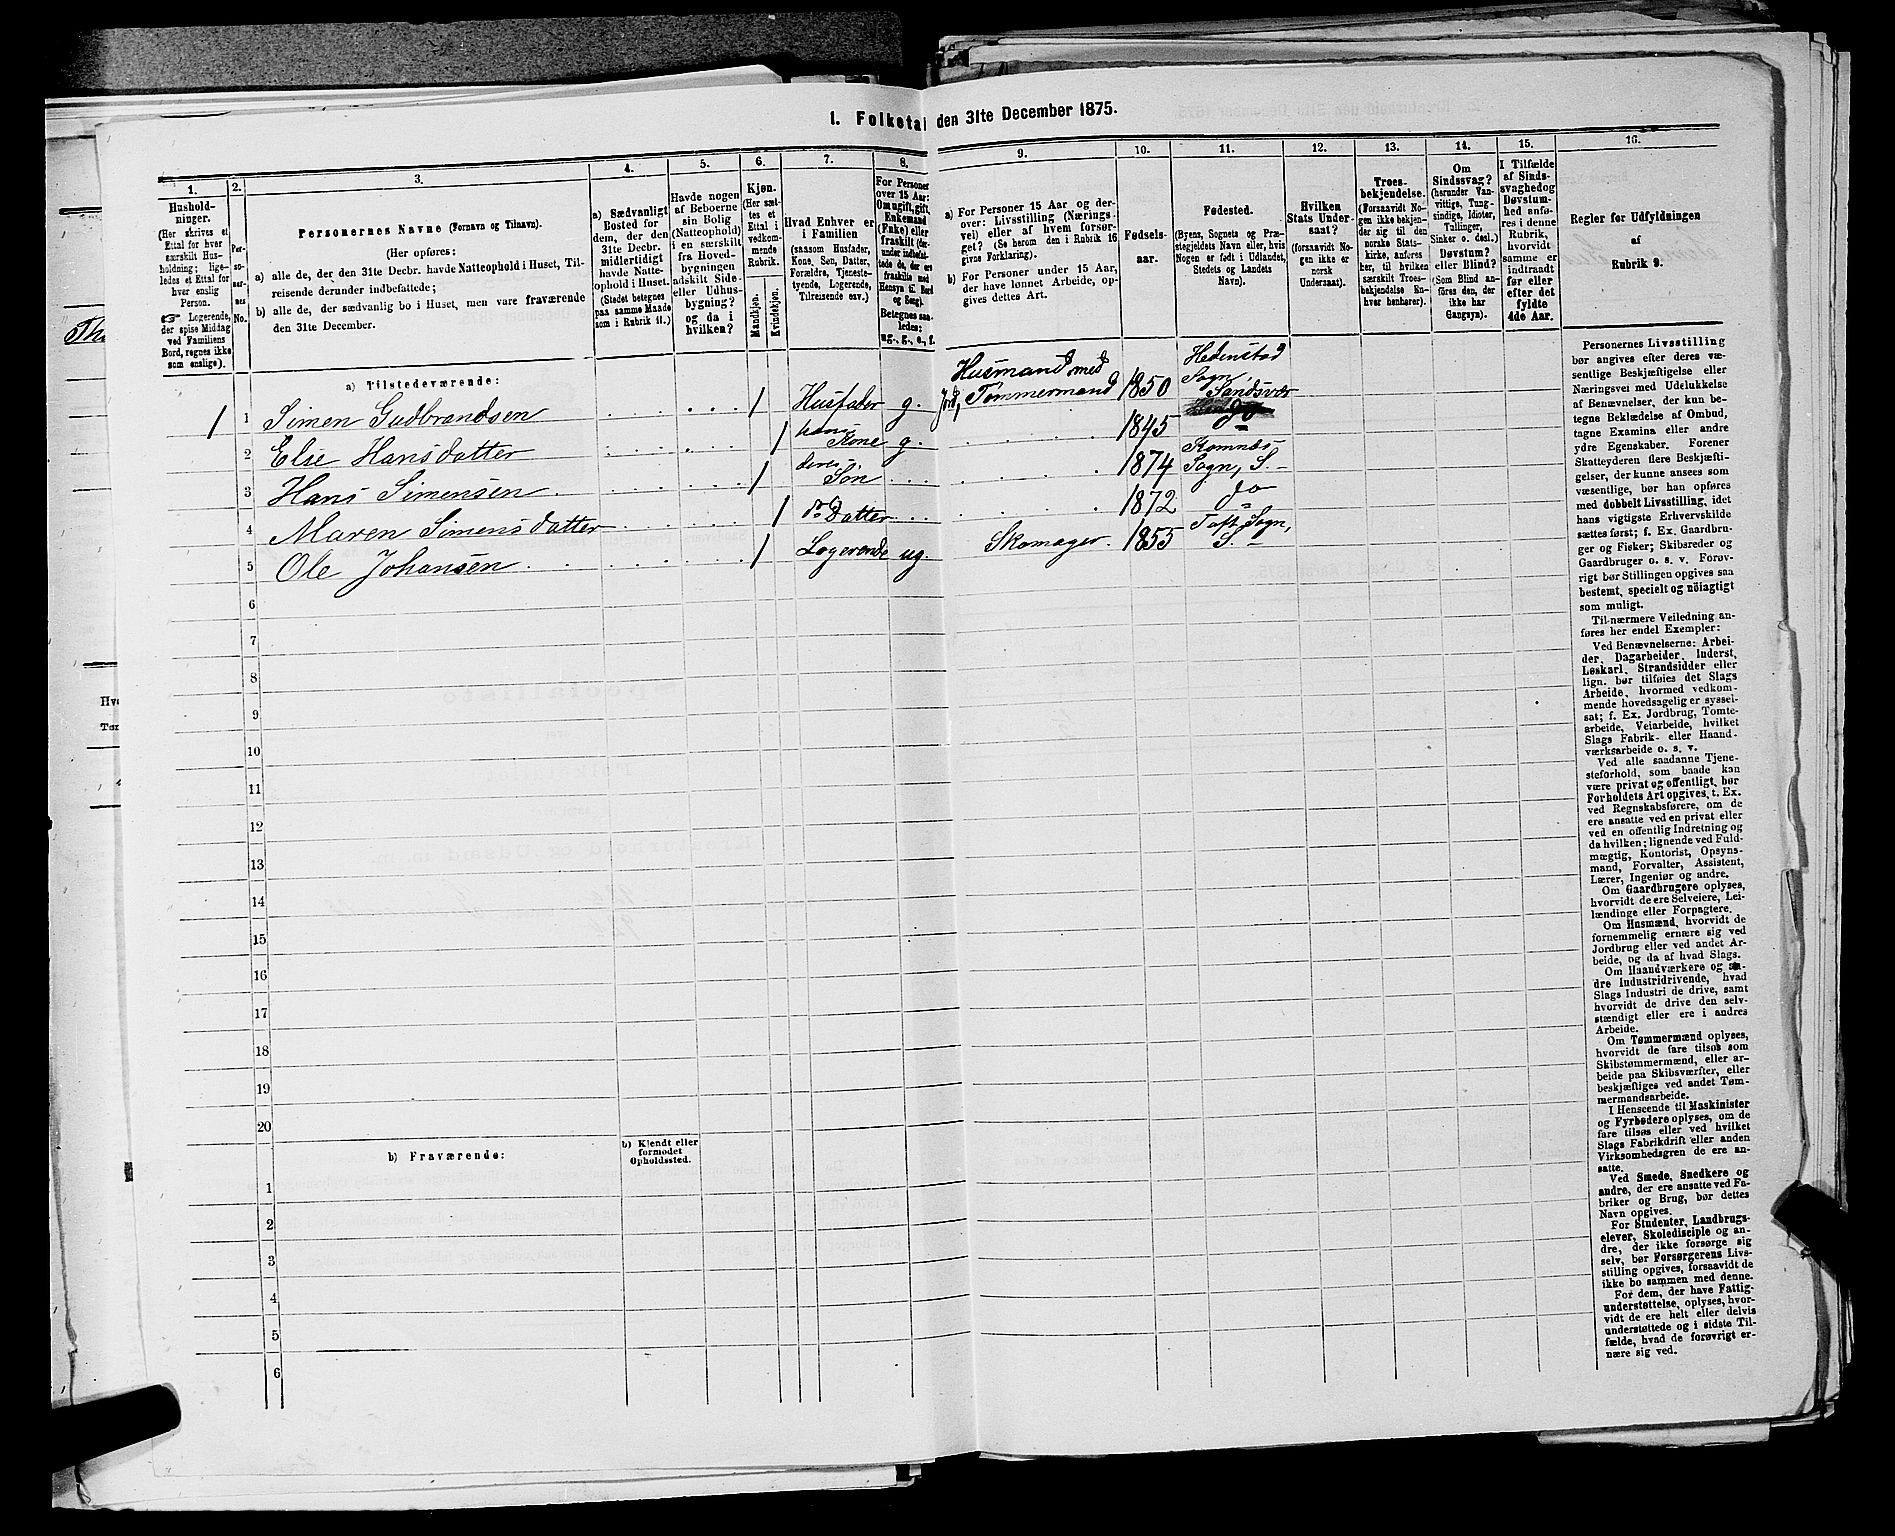 1. Folketal den 31te December 1875.
1.
2.
3.
4.
5.
6.
7.
8.
9.
10.
11.
12.
13.
14.
15.
16.
Hushold-
ninger.
(Her skrives et
Ettal for hver
særskilt Hus-
holdning; lige-
ledes et Ettal for
hver enslig
Person.
☞ Logerende,
der spise Middag
ved Familiens
Bord, regnes ikke
som enslige).
Per-
so-
ner-
nes
No.
Personernes Navne (Fornavn og Tilnavn).
(Her opføres:
a) alle de, der den 31te Decbr. havde Natteophold i Huset, Til-
reisende derunder indbefattede;
b) alle de, der sædvanlig bo i Huset, men vare fraværende
den 31te December.
a) Sædvanligt
Bosted for
dem, der den
31te Decbr.
midlertidigt
havde Natte-
ophold i Huset.
(Stedet betegnes
paa samme Maade
som i Rubrik 11.)
Havde nogen
af Beboerne
sin Bolig
(Natteophold)
i en særskilt
fra Hoved-
bygningen
adskilt Side-
eller Udhus-
bygning?
og da i
hvilken?
Kjøn.
(Her sæt-
tes et
Ettal i
vedkom-
mende
Rubrik.
Mandkjøn.
Kvindekjøn.
Hvad Enhver er
i Familien
(saasom Husfader,
Kone, Søn, Datter,
Forældre, Tjeneste-
tyende, Logerende,
Tilreisende osv.)
For Personer
over 15 Aar:
Om ugift, gift,
Enkemand
(Enke) eller
fraskilt (der-
under indbefat-
tede de, der ere
fraskilte med
Hensyn til Bord
og Seng).
Betegnes saa-
ledes:
ug., g., e., f.
a) For Personer 15 Aar og der-
over: Livsstilling (Nærings-
vei) eller af hvem forsør-
get? (Se herom den i Rubrik 16
givne Forklaring).
b) For Personer under 15 Aar,
der have lønnet Arbeide, op-
gives dettes Art.
Fødsels-
aar.
Fødested.
(Byens, Sognets og Præ-
stegjeldets Navn eller, hvis
Nogen er født i Udlandet,
Stedets og Landets
Navn).
Hvilken
Stats Under-
saat?
(forsaavidt No-
gen ikke er
norsk
Undersaat).
Troes-
bekjendelse.
(Forsaavidt No-
gen ikke bekjen-
der sig til den
norske Stats-
kirke, anføres
her, til hvilken
særskilt Troes-
bekjendelse En-
hver henhører).
Om
Sindssvag?
(herunder Van-
vittige, Tung-
sindige, Idioter,
Tullinger,
Sinker o. desl.)
Døvstum?
eller Blind?
(Som Blind an-
føres den, der
ikke har
Gangsyn).
I Tilfælde
af Sinds-
svaghed og
Døvstum-
hed anfø-
res i denne
Rubrik,
hvorvidt
samme er
indtraadt
før eller
efter det
fyldte
4de Aar.
Regler for Udfyldningen
af
Rubrik 9.
a) Tilstedeværende:
1 1 Simen Gudbrandsen 1 Husfader g. Husmand med Jord, Tømmermand 1850 Hedenstad Sogn, Sandsvær
2 Else Hansdatter 1 hans Kone g. 1845 do
3 Hans Simensen 1 deres Søn 1874 Komnæs Sogn, S.
4 Maren Simensdatter 1 do Datter 1872 do
5 Ole Johansen 1 Logerende ug. Skomager. 1855 Tuft Sogn, S.
6
7
8
9
10
11
12
13
14
15
16
17
18
19
20
b) Fraværende:
b) Kjendt eller
formodet
Opholdssted.
1
2
3
4
5
6
Personernes Livsstilling
bør angives efter deres væ-
sentlige Beskjæftigelse eller
Næringsvei med Udelukkelse
af Benævnelser, der kun be-
tegne Beklædelse af Ombud,
tagne Examina eller andre
ydre Egenskaber. Forener
Skatteyderen flere Beskjæfti-
gelser, der kunne ansees som
væsentlige, bør han opføres
med dobbelt Livsstilling, idet
hans vigtigste Erhvervskilde
sættes først; f. Ex. Gaardbru-
ger og Fisker; Skibsreder og
Gaardbruger o. s. v. Forøv-
rigt bør Stillingen opgives saa
bestemt, specielt og nöiagtigt
som muligt.
Til nærmere Veiledning an-
føres her endel Exempler:
Ved Benævnelserne: Arbei-
der, Dagarbeider, Inderst,
Løskarl, Strandsidder eller
lign. bør tilføies det Slags
Arbeide, hvormed vedkom-
mende hovedsagelig er syssel-
sat; f. Ex. Jordbrug, Tomte-
arbeide, Veiarbeide, hvilket
Slags Fabrik- eller Haand-
værksarbeide o. s. v.
Ved alle saadanne Tjene-
steforhold, som baade kan
være privat og offentligt, bør
Forholdets Art opgives, t. Ex.
ved Regnskabsførere, om de
ere ansatte ved en privat eller
ved en offentlig Indretning og
da hvilken; lignende ved Fuld-
mægtig, Kontorist, Opsyns-
mand, Forvalter, Assistent,
Lærer, Ingeniør og andre.
Om Gaardbrugere oplyses,
hvorvidt de ere Selveiere, Lei-
lændinge eller Forpagtere.
Om Husmænd, hvorvidt de
fornemmelig ernære sig ved
Jordbrug eller ved andet Ar-
beide, og da af hvad Slags.
Om Haandværkere og an-
dre Industridrivende, hvad
Slags Industri de drive, samt
hvorvidt de drive den selv-
stændigt eller ere i andres
Arbeide.
Om Tømmermænd oplyses,
hvorvidt de fare tilsøs som
Skibstømmermænd, eller ar-
beide paa Skibsværfter, eller
beskjæftiges ved andet Tøm-
mermandsarbeide.
I Henseende til Maskinister
og Fyrbødere oplyses, om de
fare tilsøs eller ved hvilket
Slags Fabrikdrift eller anden
Virksomhedsgren de ere an-
satte.
Ved Smede, Snedkere og
andre, der ere ansatte ved Fa-
briker og Brug, bør dettes
Navn opgives.
For Studenter, Landbrugs-
elever, Skoledisciple og an-
dre, der ikke forsørge sig
selv, bør Forsørgerens Livs-
stilling opgives, forsaavidt de
ikke bo sammen med denne.
For dem, der have Fattig-
understøttelse, oplyses, hvor-
vidt de ere helt eller delvis
understøttede og i sidste Til-
fælde, hvad de forøvrigt er-
nære sig ved.